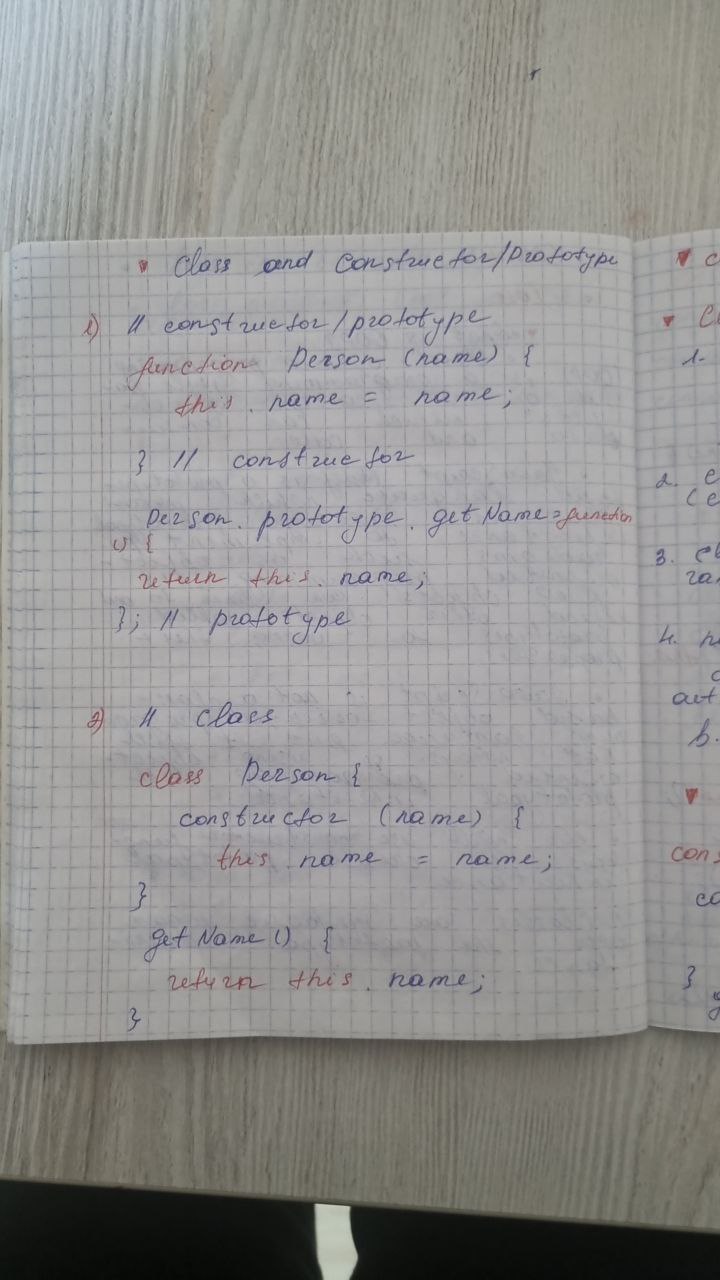 ▾ Class and Constructor/Prototype
1) // constructor/prototype
function Person (name) {
this. name = name;
} // constructor
Person. prototype. getName = function
() {
return this. name;
}; // prototype
2) // Class
class Person {
constructor (name) {
this. name = name;
}
getName () {
return this. name;
}
1.
2.
3.
4.
b.
}